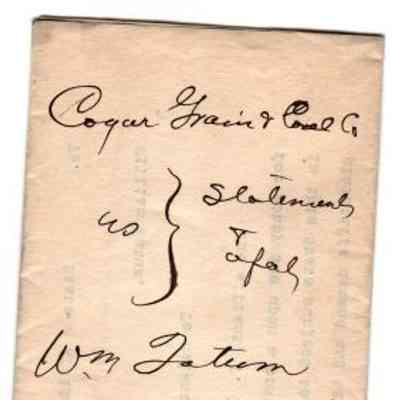 Cogar Grain & Coal Co
vs } Statement
&
Wm Tatum